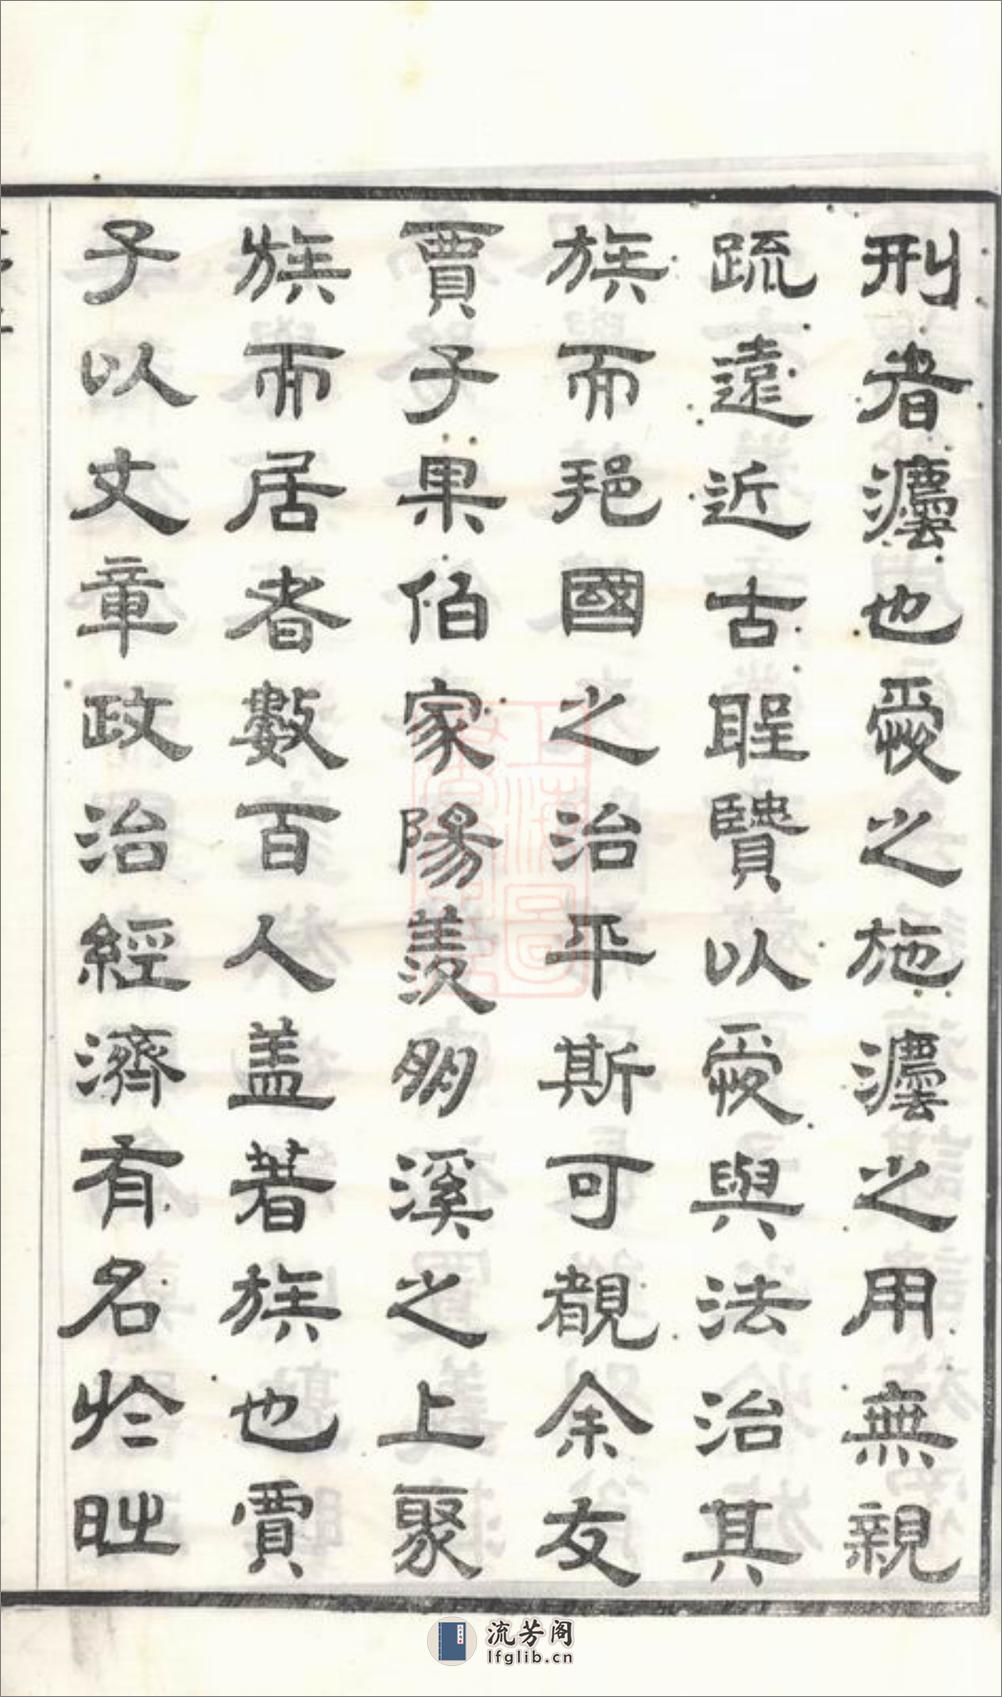 刑者灋也愛之施灋之用無親
疏遠近古聖賢以愛與法治其
族而邦國之治平斯可覩余友
賈子果伯家陽羨朙溪之上聚
族而居者數百人盖著族也賈
子以文章政治經濟有名於時
流芳阁
lfglib.cn